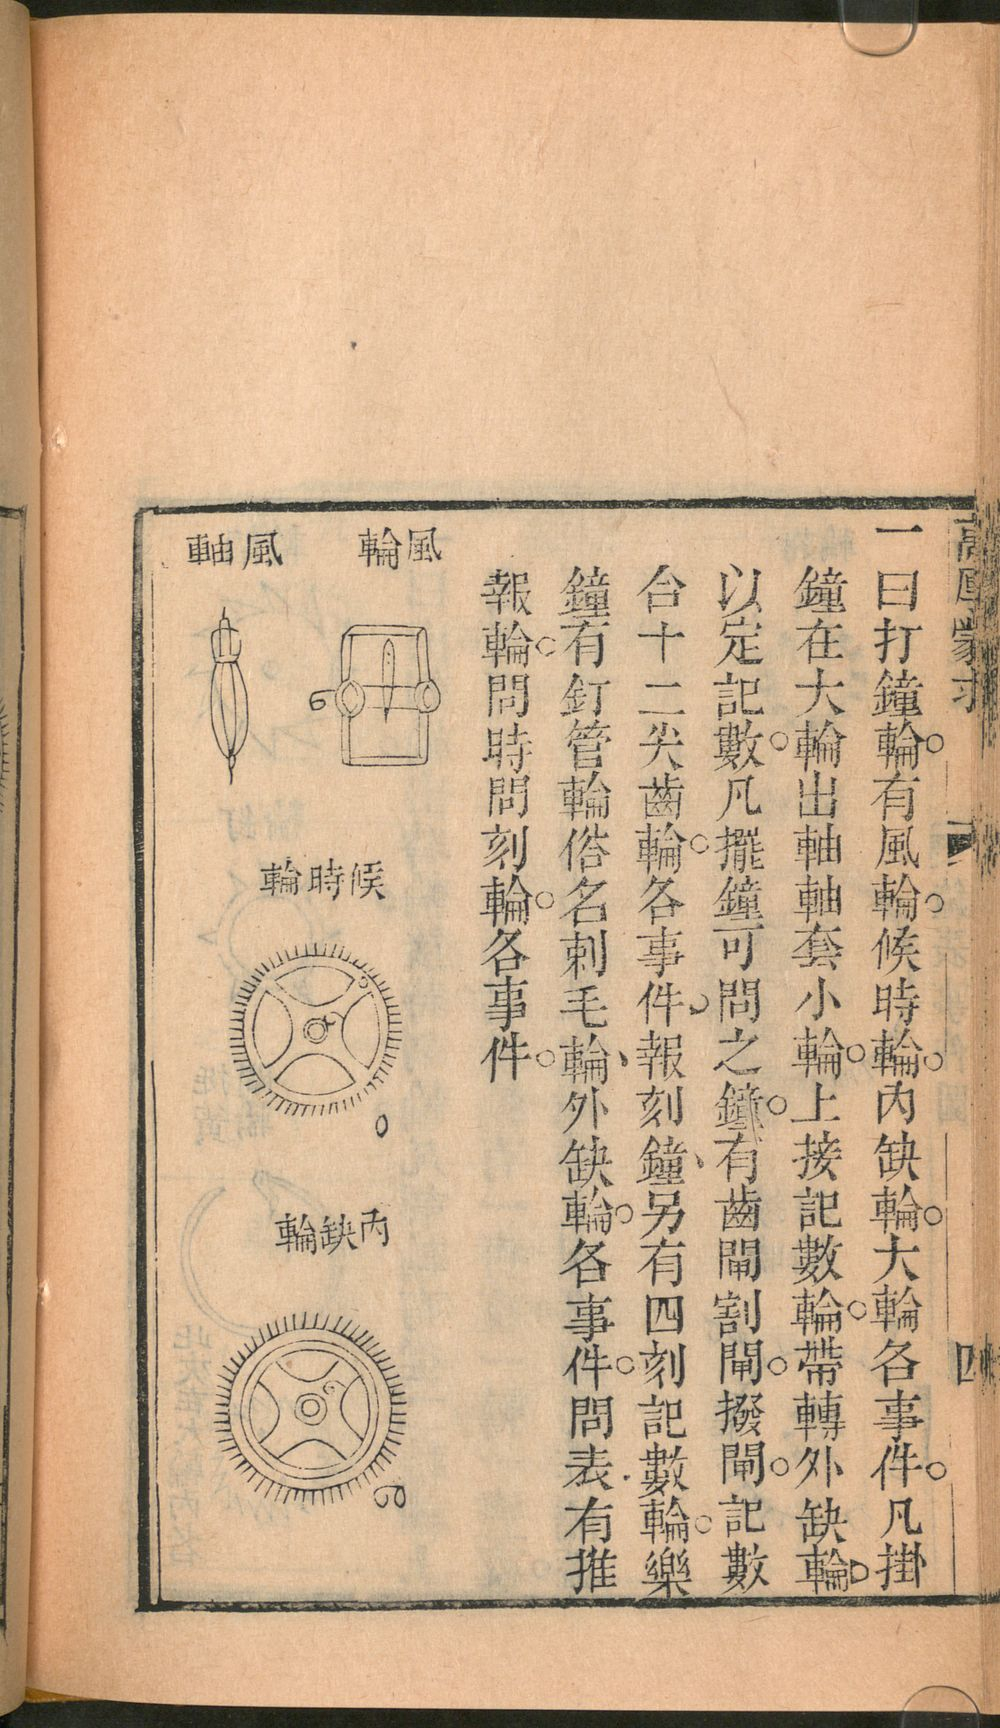 高厚蒙求
四
一曰打鐘輪。有風輪。候時輪。內缺輪。大輪各事件。凡掛
鐘在大輪出軸軸套小輪。上接記數輪。帶轉外缺輪。
以定記數。凡擺鐘可問之鐘。有齒閘割閘。撥閘。記數
台十二尖齒輪。各事件。報刻鐘、另有四刻記數輪。樂
鐘有釘管輪俗名刺毛輪、外缺輪。各事件。問表有推
報輪。問時問刻輪。各事件。
風輪
風軸
候時輪
內缺輪